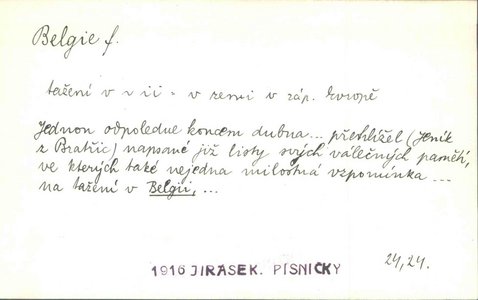 Belgie f.
tažení v n ii = v zemi v záp. Evropě
Jednou odpoledne koncem dubna... přehlížel (Jeník
z Bratřic) napsané již listy svých válečných pamětí,
ve kterých také nejedna milostná vzpomínka ...
na tažení v Belgii, ...
1916 JIRASEK. PÍSNIČKY
24,24.